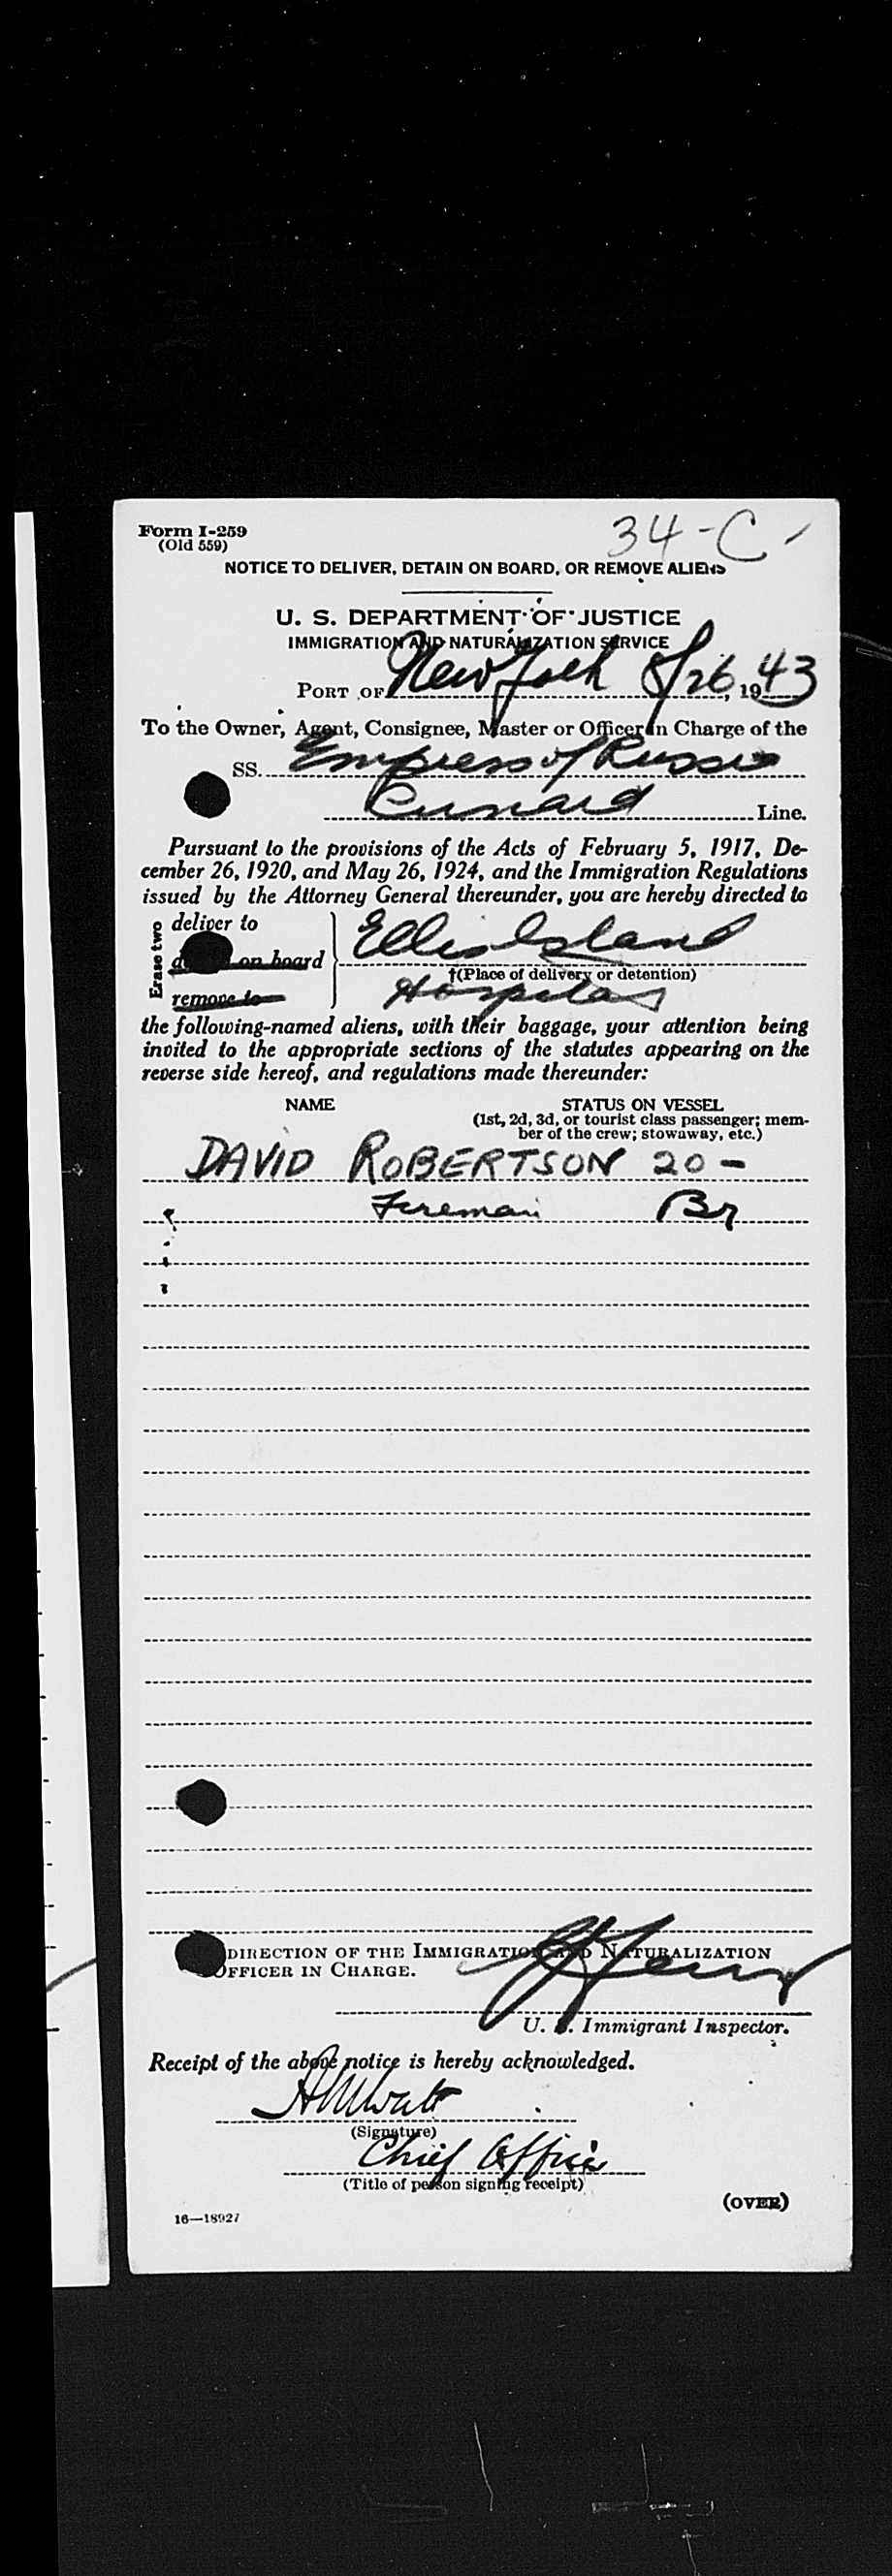 Form I-259
(Old 559)
34-C
NOTICE TO DELIVER, DETAIN ON BOARD, OR REMOVE ALIENS
U. S. DEPARTMENT OF JUSTICE
IMMIGRATION AND NATURALIZATION SERVICE
PORT OF New York 8/26, 1943
To the Owner, Agent, Consignee, Master or Officer in Charge of the
SS. Empress of Russia
Cunard Line.
Pursuant to the provisions of the Acts of February 5, 1917, De-
cember 26, 1920, and May 26, 1924, and the Immigration Regulations
issued by the Attorney General thereunder, you are hereby directed to
Erase two
deliver to
on board
remove to
Ellis Island
†(Place of delivery or detention)
Hospital
the following-named aliens, with their baggage, your attention being
invited to the appropriate sections of the statutes appearing on the
reverse side hereof, and regulations made thereunder:
NAME STATUS ON VESSEL
(1st, 2d, 3d, or tourist class passenger; mem-
ber of the crew; stowaway, etc.)
DAVID ROBERTSON 20 -
Fireman Br
DIRECTION OF THE IMMIGRATION AND NATURALIZATION
OFFICER IN CHARGE.
U. S. Immigrant Inspector.
Receipt of the above notice is hereby acknowledged.
(Signature)
Chief Officer
(Title of person signing receipt)
(OVER)
16—18927